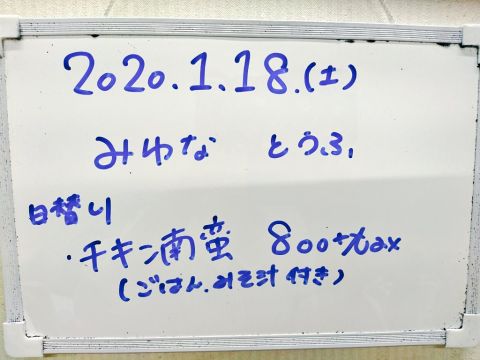 2020.1.18.(土)
みゆな とうふ
日替り
・チキン南蛮 800+tax
(ごはん.みそ汁付き)